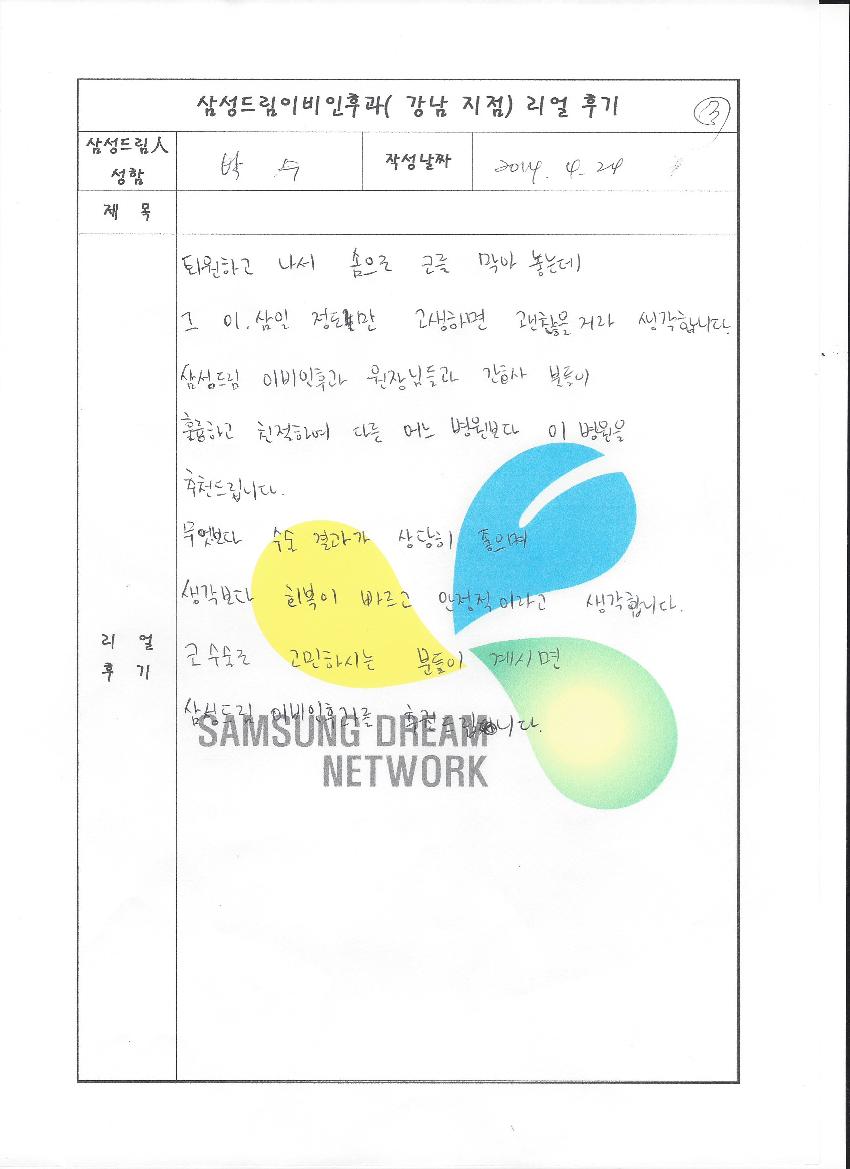 삼성드림이비인후과( 강남 지점) 리얼 후기
③
삼성드림人
성함
박 수
작성날짜
2014. 4. 24
제 목
퇴원하고 나서 솜으로 코를 막아 놓는데
그 이.삼일 정도만 고생하면 괜찮을거라 생각합니다.
삼성드림 이비인후과 원장님들과 간호사 분들이
훌륭하고 친절하여 다른 어느 병원보다 이 병원을
추천드립니다.
무엇보다 수술 결과가 상당히 좋으며
생각보다 회복이 빠르고 안정적이라고 생각합니다.
리 얼
후 기
코 수술로 고민하시는 분들이 계시면
삼성드림 이비인후과를 추천드립니다.
SAMSUNG DREAM
NETWORK